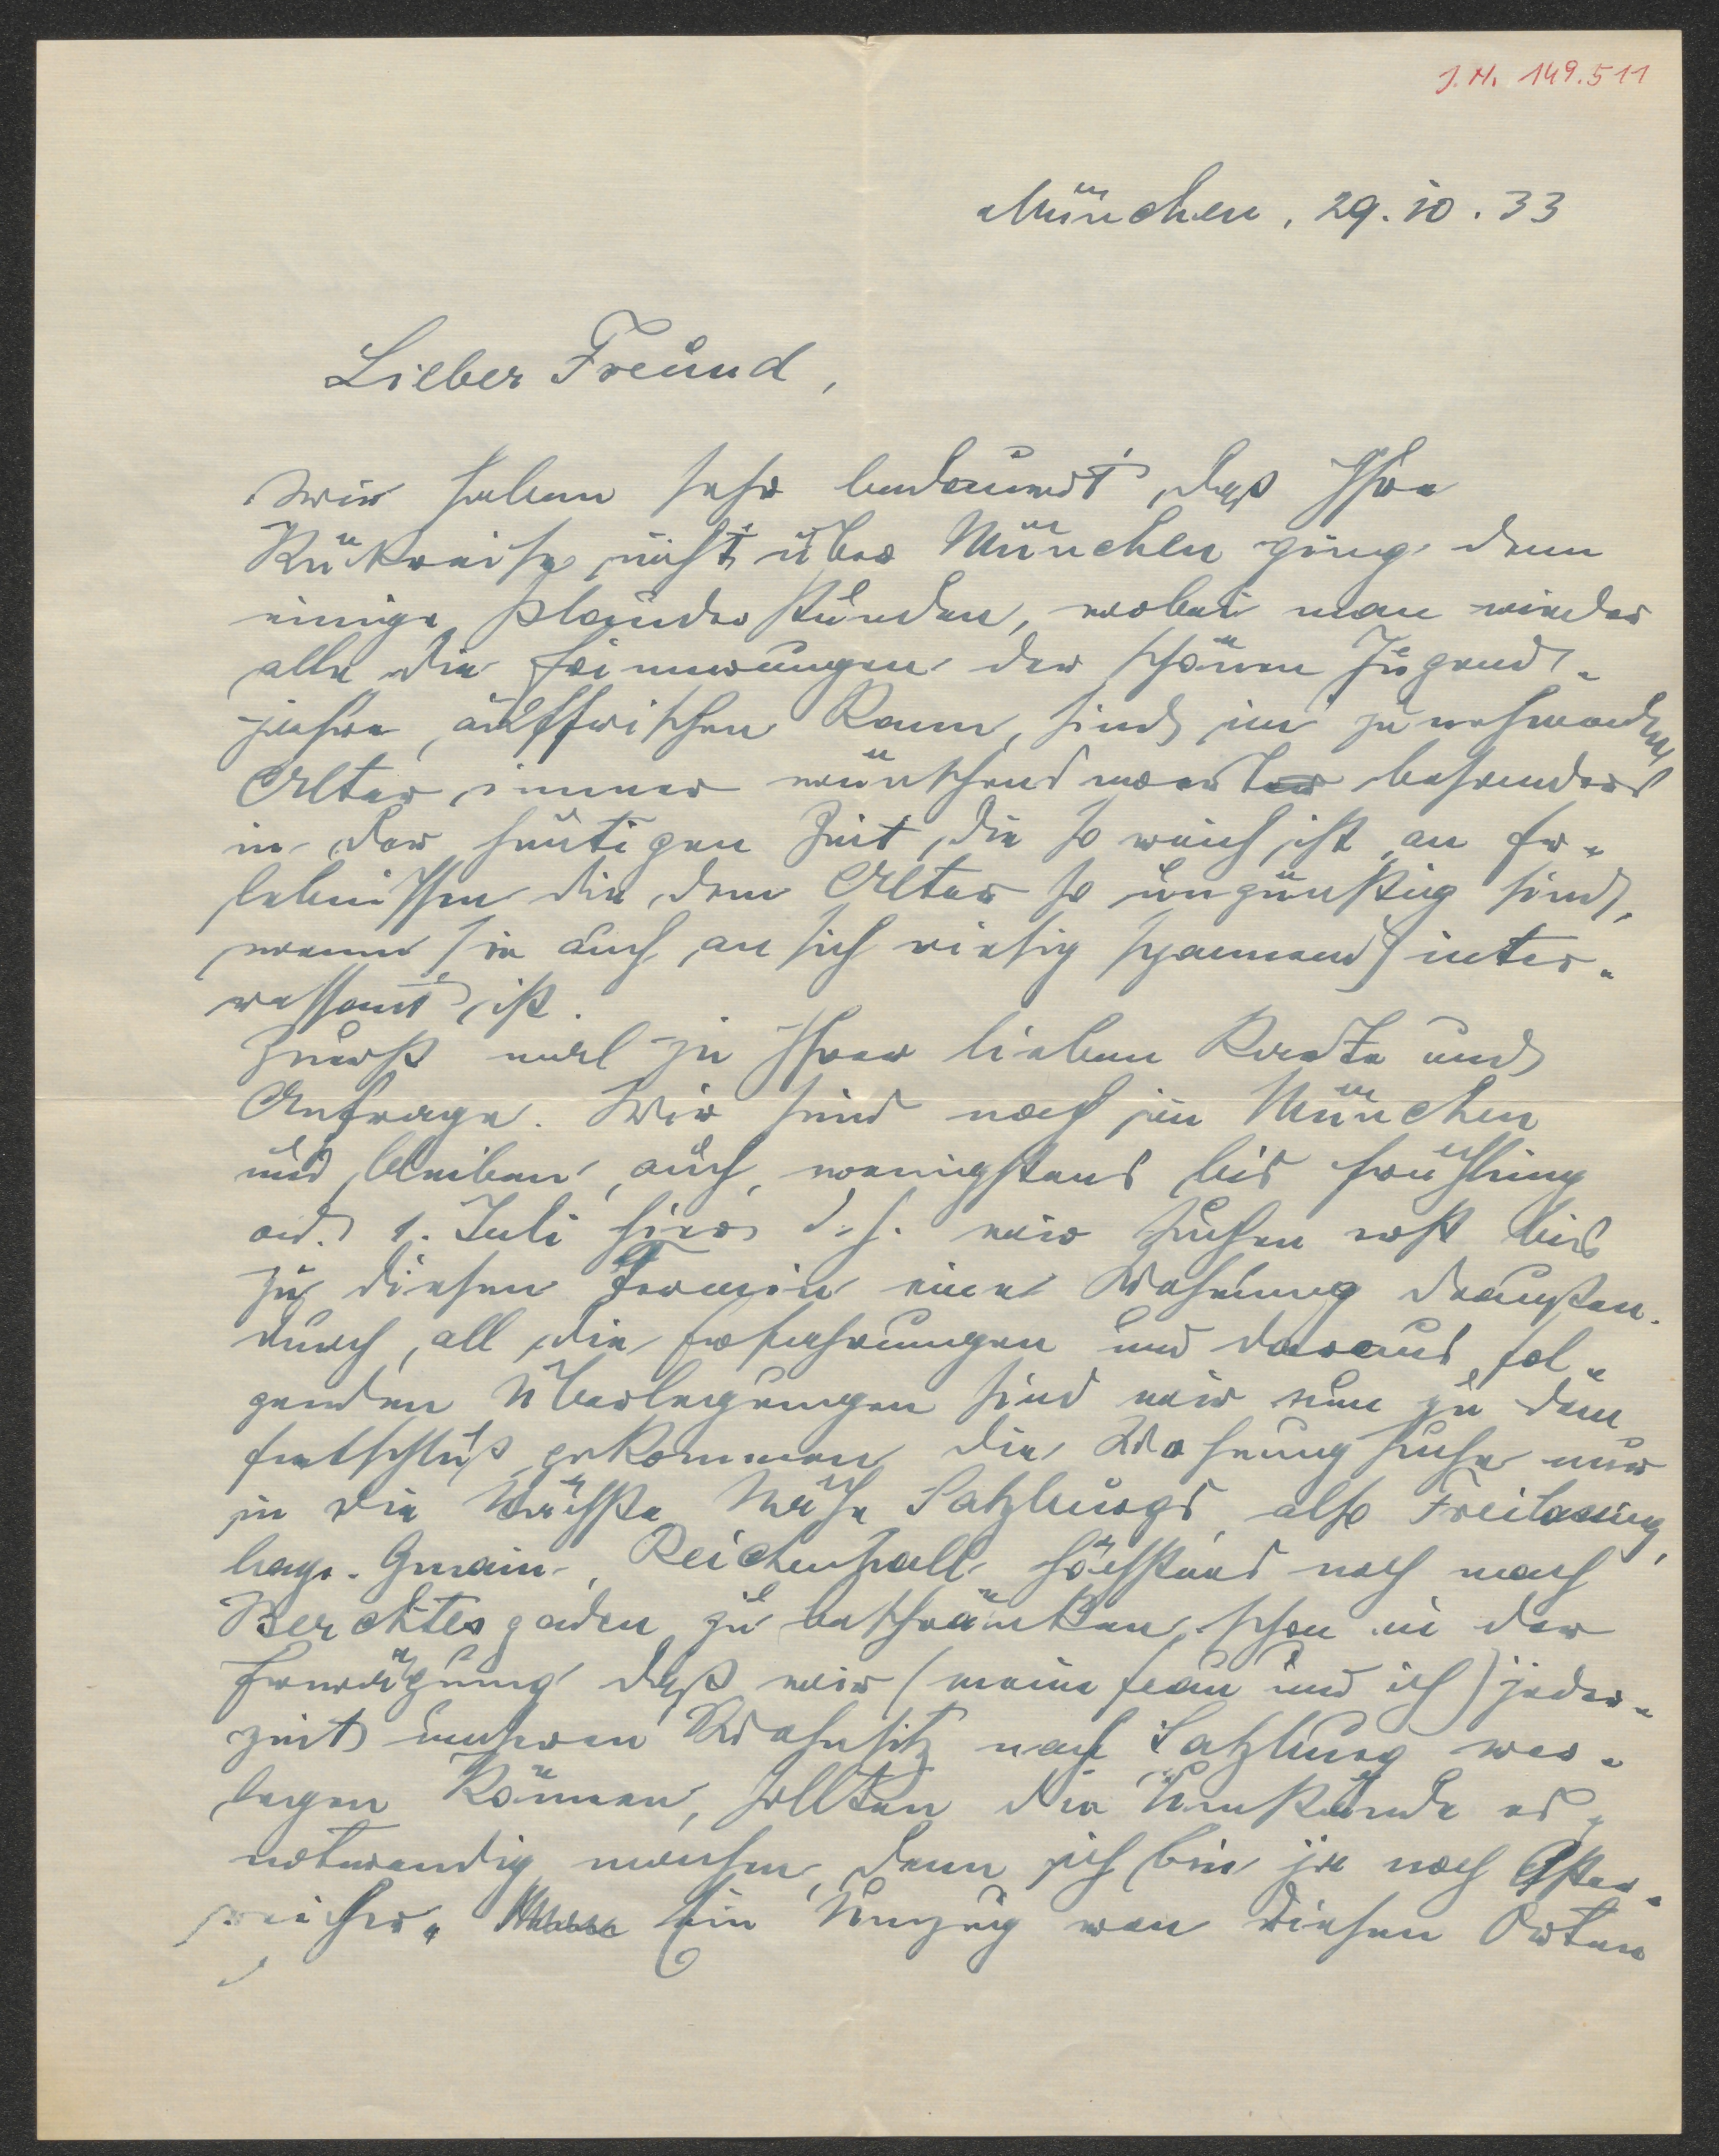 J.N. 149.511
München, 29.10.33
Lieber Freund,
Wir haben sehr bedauert, daß Ihre
Rückreise nicht über München ging denn
einige Plauderstunden, wobei man wieder
alle die Erinnerungen der schönen Jugend-
jahre auffrischen kann, sind im zunehmenden
Alter immer wünschenswerter besonders
in der heutigen Zeit, die so reich ist an Er-
lebnissen die dem Alter so ungünstig sind,
wenn sie auch an sich riesig spannend inter-
essant ist.
Zuerst mal zu Ihrer lieben Karte und
Anfrage. Wir sind noch in München
und bleiben auch, wenigstens bis Frühling
od. 1. Juli hier d.h. wir suchen erst bis
zu diesem Termin eine Wohnung draußen.
Durch all die Erfahrungen und daraus fol-
genden Überlegungen sind wir nun zu dem
Entschluß gekommen die Wohnungsuche nur
in die nächste Nähe Salzburgs, also Freilassing,
bayr. Gmain, Reichenhall höchstens noch nach
Berchtesgaden zu beschränken, schon in der
Erwägung daß wir (meine Frau und ich) jeder-
zeit unseren Wohnsitz nach Salzburg ver-
legen können, sollten die Umstände es
notwendig machen, denn ich bin ja noch Öster-
reicher. Ein Umzug von diesen Orten